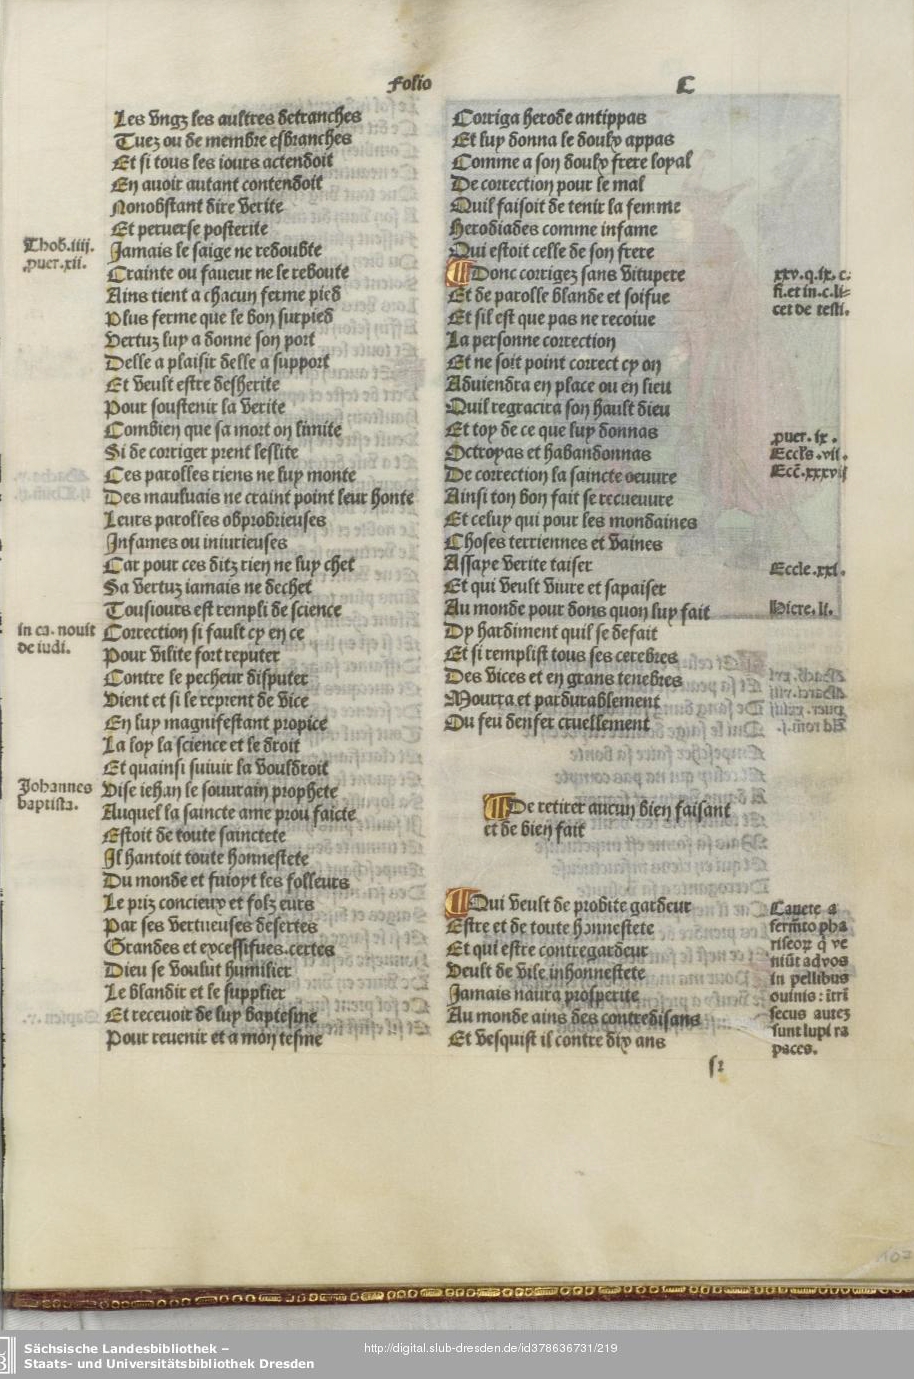 Folio C
Les vngz les aultres detranches
Tuez ou de membre esbranches
Et si tous les iours actendoit
En auoir autant contendoit
Nonobstant dire verite
Et peruerse posterite
Thob. iiij.
puer. xii.
Jamais le saige ne redoubte
Crainte ou faueur ne le reboute
Ains tient a chacun ferme pied
Plus ferme que le bon surpied
Vertuz luy a donne son port
Delle a plaisir delle a support
Et veult estre desherite
Pour soustenir la verite
Combien que sa mort on limite
Si de corriger prent leslite
Ces parolles riens ne luy monte
Des mauluais ne craint point leur honte
Leurs parolles obprobrieuses
Infames ou iniurieuses
Car pour ces ditz rien ne luy chet
Sa vertuz iamais ne dechet
Tousiours est rempli de science
in ca. nouit
de iudi.
Correction si fault cy en ce
Pour vilite fort reputer
Contre le pecheur disputer
Vient et si le reprent de vice
En luy magnifestant propice
La loy la science et le droit
Et quainsi suiuir la vouldroit
Johannes
baptista.
Vise iehan le souurain prophete
Auquel la saincte ame prou faicte
Estoit de toute sainctete
Il hantoit toute honnestete
Du monde et fuioyt les folleurs
Le priz concieux et folz eurs
Par ses vertueuses desertes
Grandes et excessifues certes
Dieu se voulut humilier
Le blandir et le supplier
Et receuoir de luy baptesme
Pour reuenir et a mon tesme
Corriga herode antippas
Et luy donna le doulx appas
Comme a son doulx frere loyal
De correction pour le mal
Quil faisoit de tenir la femme
Herodiades comme infame
Qui estoit celle de son frere
Donc corrigez sans vitupere
xxv. q. ix. c.
fi. et in. c. li=
cet de testi.
Et de parolle blande et soifue
Et sil est que pas ne recoiue
La personne correction
Et ne soit point correct cy on
Aduiendra en place ou en lieu
Quil regracira son hault dieu
Et toy de ce que luy donnas
puer. ix.
Eccls. vii.
Ecc̄. xxxvij
Octroyas et habandonnas
De correction la saincte oeuure
Ainsi ton bon fait se recueuure
Et celuy qui pour les mondaines
Choses terriennes et vaines
Assaye verite taiser
Eccle. xxi.
Et qui veult viure et sapaiser
Au monde pour dons quon luy fait
Hiere. li.
Dy hardiment quil se defait
Et si remplist tous ses cerebres
Des vices et en grans tenebres
Mourra et pardurablement
Du feu denfer cruellement
De retirer aucun bien faisant
et de bien fait
Qui veult de probite gardeur
Estre et de toute honnestete
Et qui estre contregardeur
Veult de vile inhonnestete
Jamais naura prosperite
Au monde ains des contredisans
Et vesquist il contre dix ans
Cauete a
ferm̄to pha
riseoꝝ q̄ ve
niūt ad vos
in pellibus
ouinis: ītri
secus autez
sunt lupi ra
paces.
Sächsische Landesbibliothek –
Staats- und Universitätsbibliothek Dresden
http://digital.slub-dresden.de/id378636731/219